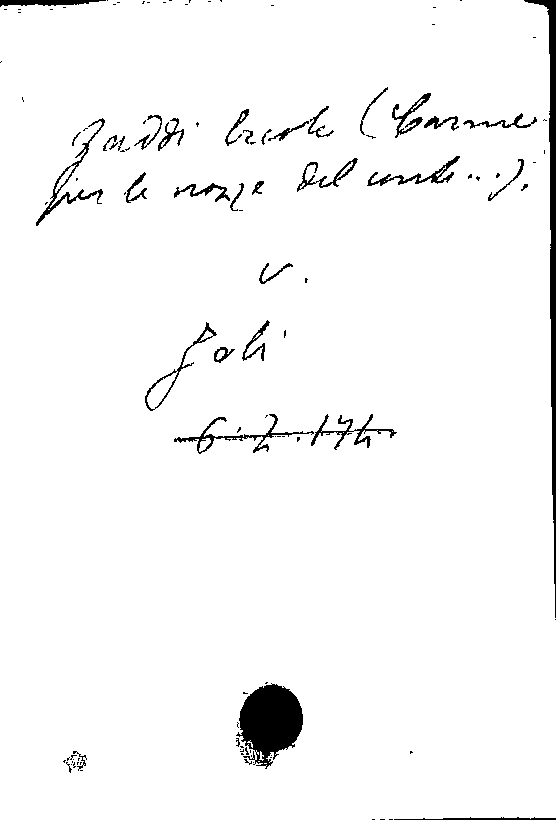 Zaddi Ercole (Carme
per le nozze del conte...).
v.
6.Z.174